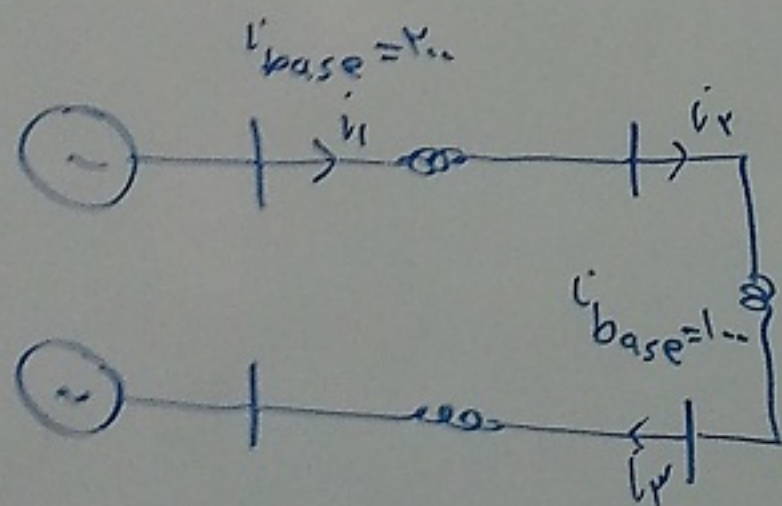 i base = ۲۰۰
i۱
i۲
i base = ۱۰۰
i۳